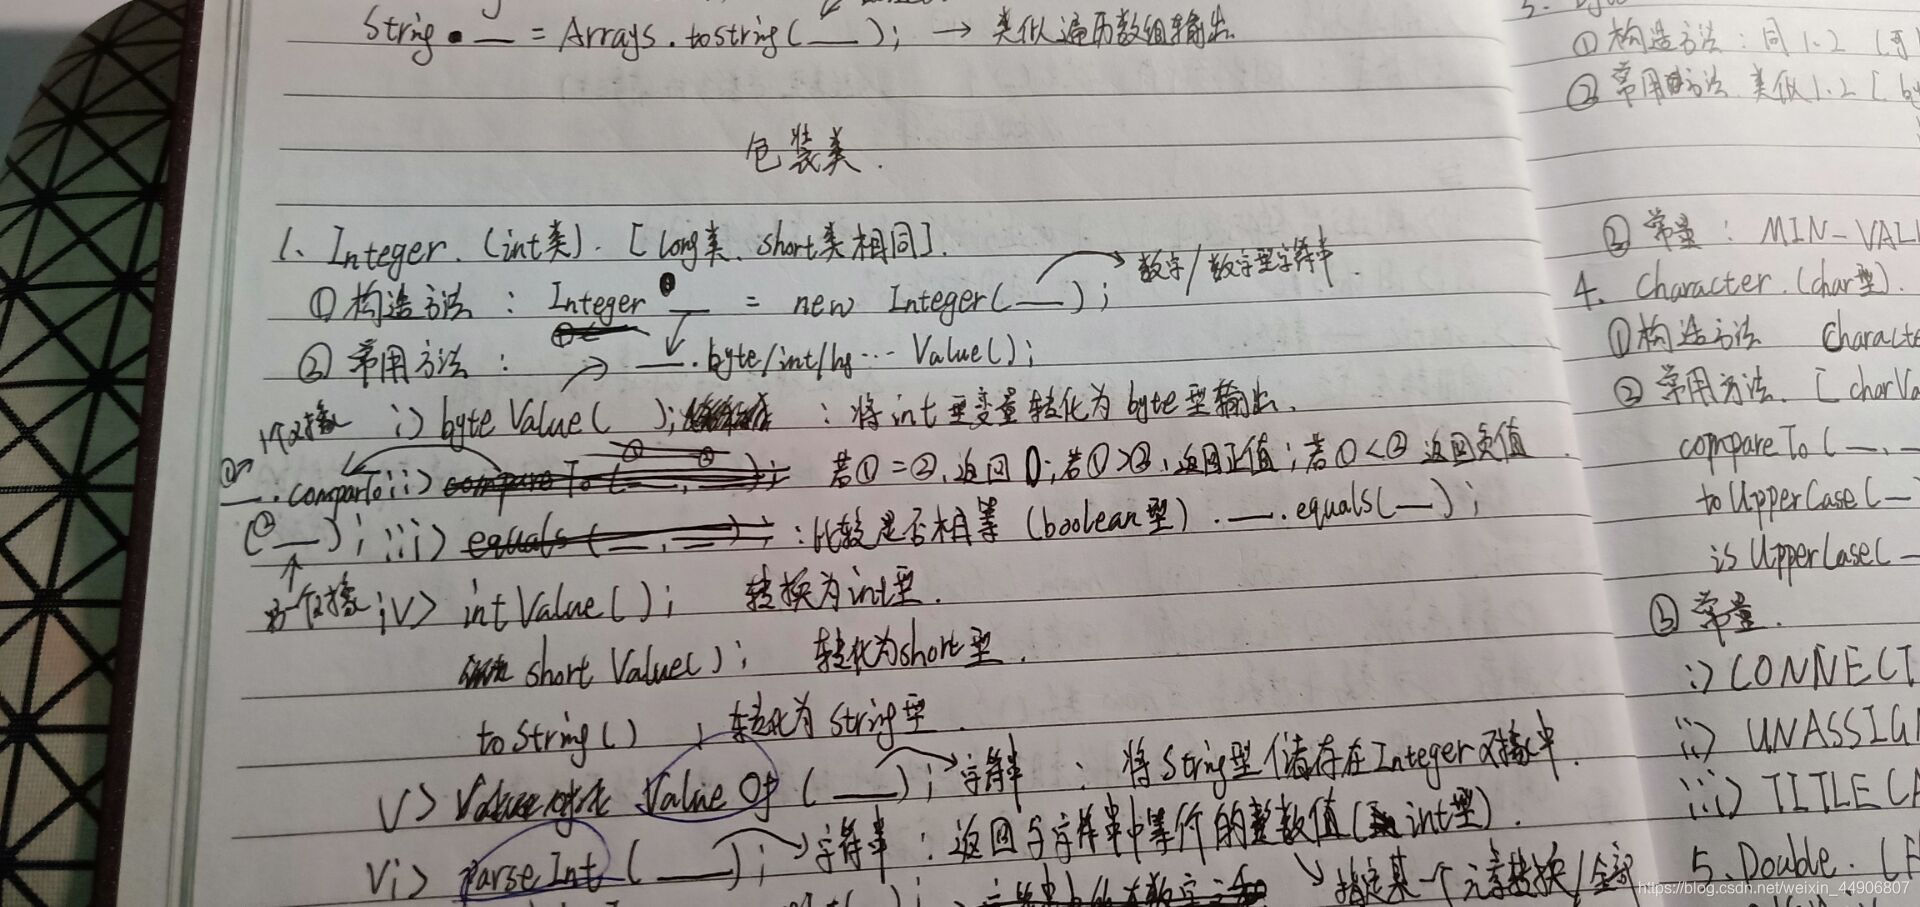 String __ = Arrays.tostring(__); → 类似遍历数组输出
包装类.
1. Integer.(int类).[long类、short类相同].
①构造方法: Integer __ = new Integer(__); → 数字/数字型字符串.
②常用方法: → __.byte/int/ Value();
1个对象 i> byteValue( ); : 将int型变量转化为byte型输出.
①→ __.comparTo ii> compareTo(__,__); ① ② 若①=②,返回0;若①>②,返回正值;若①<②返回负值
(②__); iii> equals(__,__); :比较是否相等(boolean型).__.equals(__);
另一个对象 iv> intValue(); 转换为int型.
shortValue(); 转化为short型.
toString() ; 转化为String型.
v> ValueOf(__); →字符串 : 将String型储存在Integer对象中.
vi> parseInt(__); →字符串 : 返回与字符串中等价的整数值(int型).
指定某一个元素转换/全部
①构造方法:同1.2
②常用方法 类似1.2[
③常量: MIN-VAL
4. Character.(char型).
①构造方法 Characte
②常用方法.[charVa
compareTo(__.
toUpperCase(
isUpperCase(
③常量.
i> CONNECT
ii> UNASSIG
iii> TITLECA
5. Double.(
https://blog.csdn.net/weixin_44906807